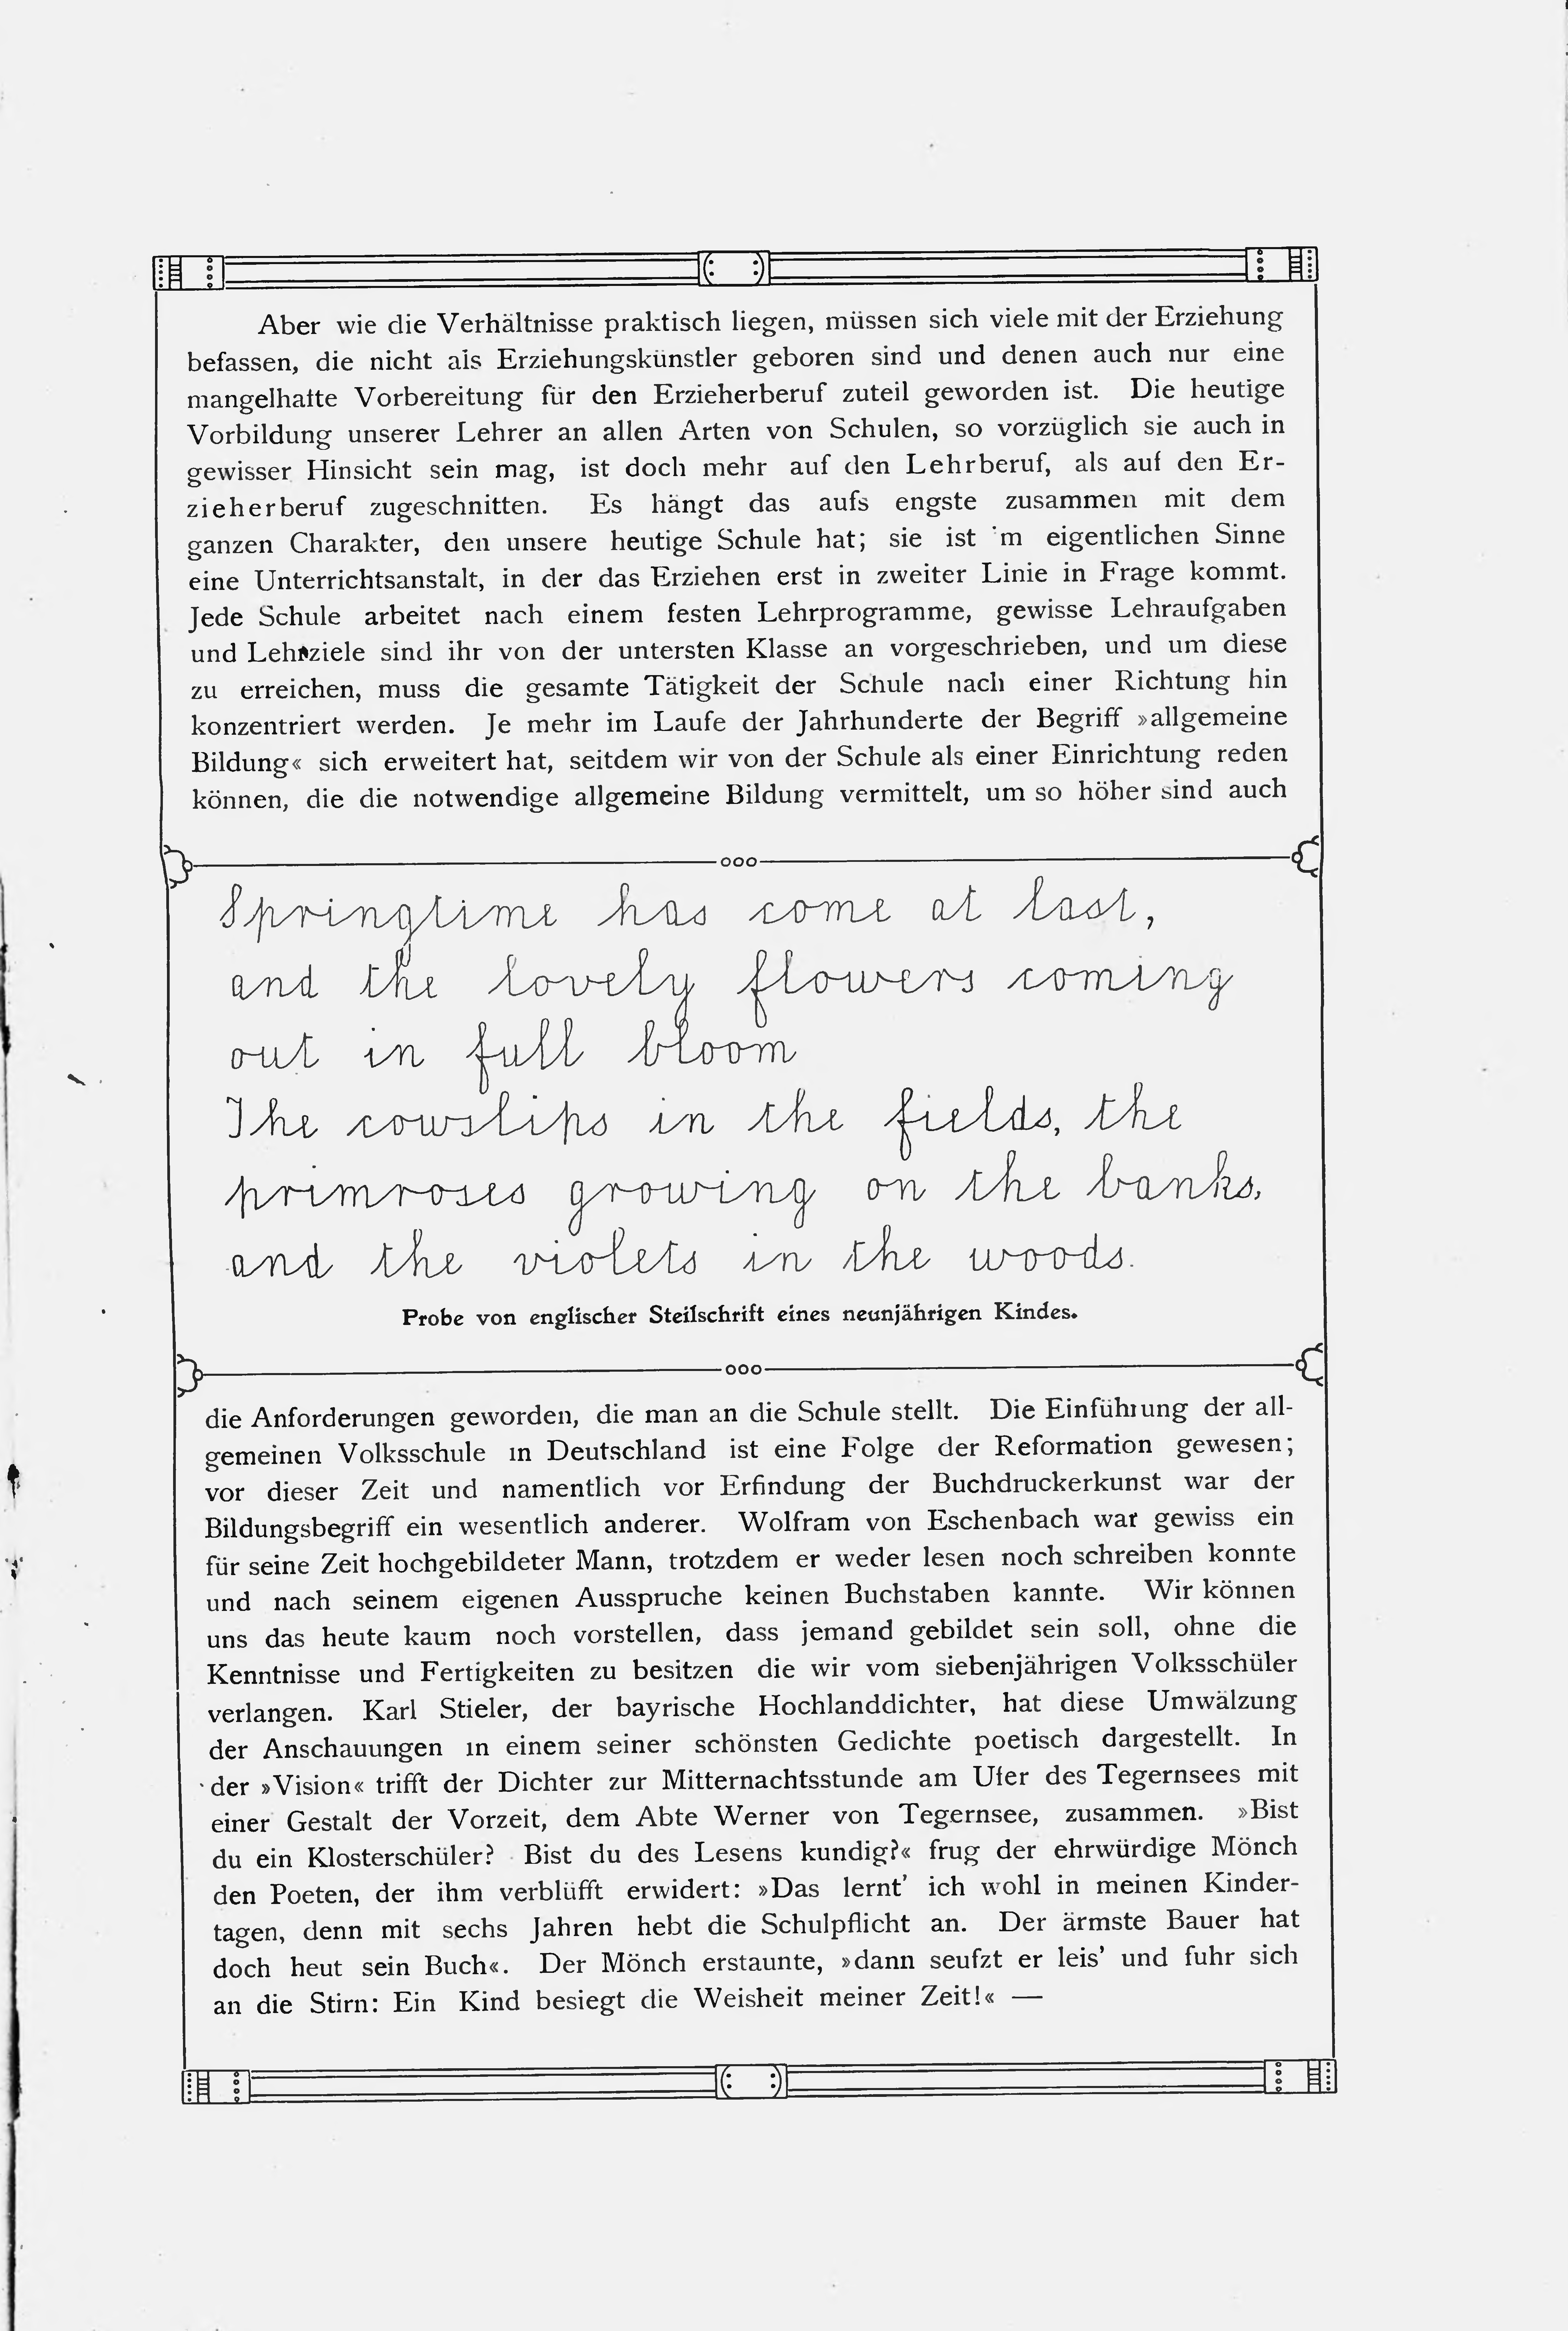 Aber wie die Verhältnisse praktisch liegen, müssen sich viele mit der Erziehung
befassen, die nicht als Erziehungskünstler geboren sind und denen auch nur eine
mangelhafte Vorbereitung für den Erzieherberuf zuteil geworden ist. Die heutige
Vorbildung unserer Lehrer an allen Arten von Schulen, so vorzüglich sie auch in
gewisser Hinsicht sein mag, ist doch mehr auf den Lehrberuf, als auf den Er-
zieherberuf zugeschnitten. Es hängt das aufs engste zusammen mit dem
ganzen Charakter, den unsere heutige Schule hat; sie ist im eigentlichen Sinne
eine Unterrichtsanstalt, in der das Erziehen erst in zweiter Linie in Frage kommt.
Jede Schule arbeitet nach einem festen Lehrprogramme, gewisse Lehraufgaben
und Lehrziele sind ihr von der untersten Klasse an vorgeschrieben, und um diese
zu erreichen, muss die gesamte Tätigkeit der Schule nach einer Richtung hin
konzentriert werden. Je mehr im Laufe der Jahrhunderte der Begriff »allgemeine
Bildung« sich erweitert hat, seitdem wir von der Schule als einer Einrichtung reden
können, die die notwendige allgemeine Bildung vermittelt, um so höher sind auch
Springtime has come at last,
and the lovely flowers coming
out in full bloom
The cowslips in the fields, the
primroses growing on the banks,
and the violets in the woods.
Probe von englischer Steilschrift eines neunjährigen Kindes.
die Anforderungen geworden, die man an die Schule stellt. Die Einführung der all-
gemeinen Volksschule in Deutschland ist eine Folge der Reformation gewesen;
vor dieser Zeit und namentlich vor Erfindung der Buchdruckerkunst war der
Bildungsbegriff ein wesentlich anderer. Wolfram von Eschenbach war gewiss ein
für seine Zeit hochgebildeter Mann, trotzdem er weder lesen noch schreiben konnte
und nach seinem eigenen Ausspruche keinen Buchstaben kannte. Wir können
uns das heute kaum noch vorstellen, dass jemand gebildet sein soll, ohne die
Kenntnisse und Fertigkeiten zu besitzen die wir vom siebenjährigen Volksschüler
verlangen. Karl Stieler, der bayrische Hochlanddichter, hat diese Umwälzung
der Anschauungen in einem seiner schönsten Gedichte poetisch dargestellt. In
der »Vision« trifft der Dichter zur Mitternachtsstunde am Ufer des Tegernsees mit
einer Gestalt der Vorzeit, dem Abte Werner von Tegernsee, zusammen. »Bist
du ein Klosterschüler? Bist du des Lesens kundig?« frug der ehrwürdige Mönch
den Poeten, der ihm verblüfft erwidert: »Das lernt’ ich wohl in meinen Kinder-
tagen, denn mit sechs Jahren hebt die Schulpflicht an. Der ärmste Bauer hat
doch heut sein Buch«. Der Mönch erstaunte, »dann seufzt er leis’ und fuhr sich
an die Stirn: Ein Kind besiegt die Weisheit meiner Zeit!« —